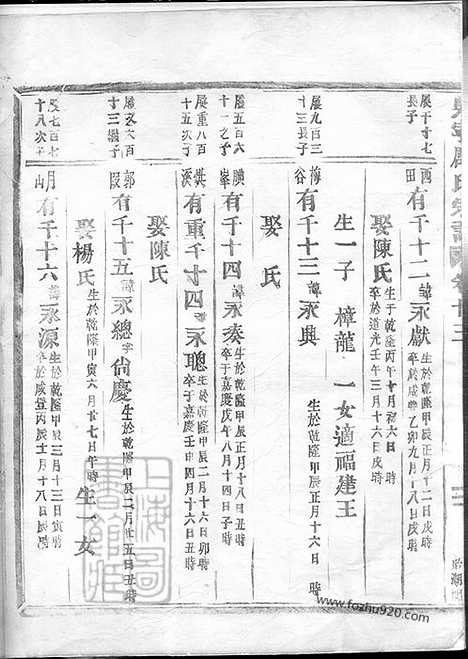 卷十三
展千十七
長子
西田
有千十二
諱永獻
生於乾隆甲辰正月十二日戌時
卒於咸豐乙卯九月十八日戌時
娶陳氏
生于乾隆丙午十月初六日 時
卒於道光壬午三月十六日戌時
生一子 樟龍 一女適福建王
展九百三
十三長子
梅谷
有千十三
諱永典
生於乾隆甲辰正月十六日 時
娶 氏
展五百六
十一之子
有千十四
諱永湊
生於乾隆甲辰正月十八日 時
卒于嘉慶戊午八月十四日子時
展重八百
十五次子
有重千十四
永聰
生於乾隆甲辰二月十六日卯時
卒于嘉慶壬申四月十六日丑時
娶陳氏
六百
十三繼子
郭段
有千十五
諱永總
字尚慶
生於乾隆甲辰二月廿五日丑時
娶楊氏
生於乾隆甲寅六月廿七日午時
生一女
展七百七
十八次子
月山
有千十六
諱永源
生於乾隆甲辰三月十三日寅時
卒於咸豐丙辰十月十八日辰時
上海圖書館藏
www.fozhu920.com